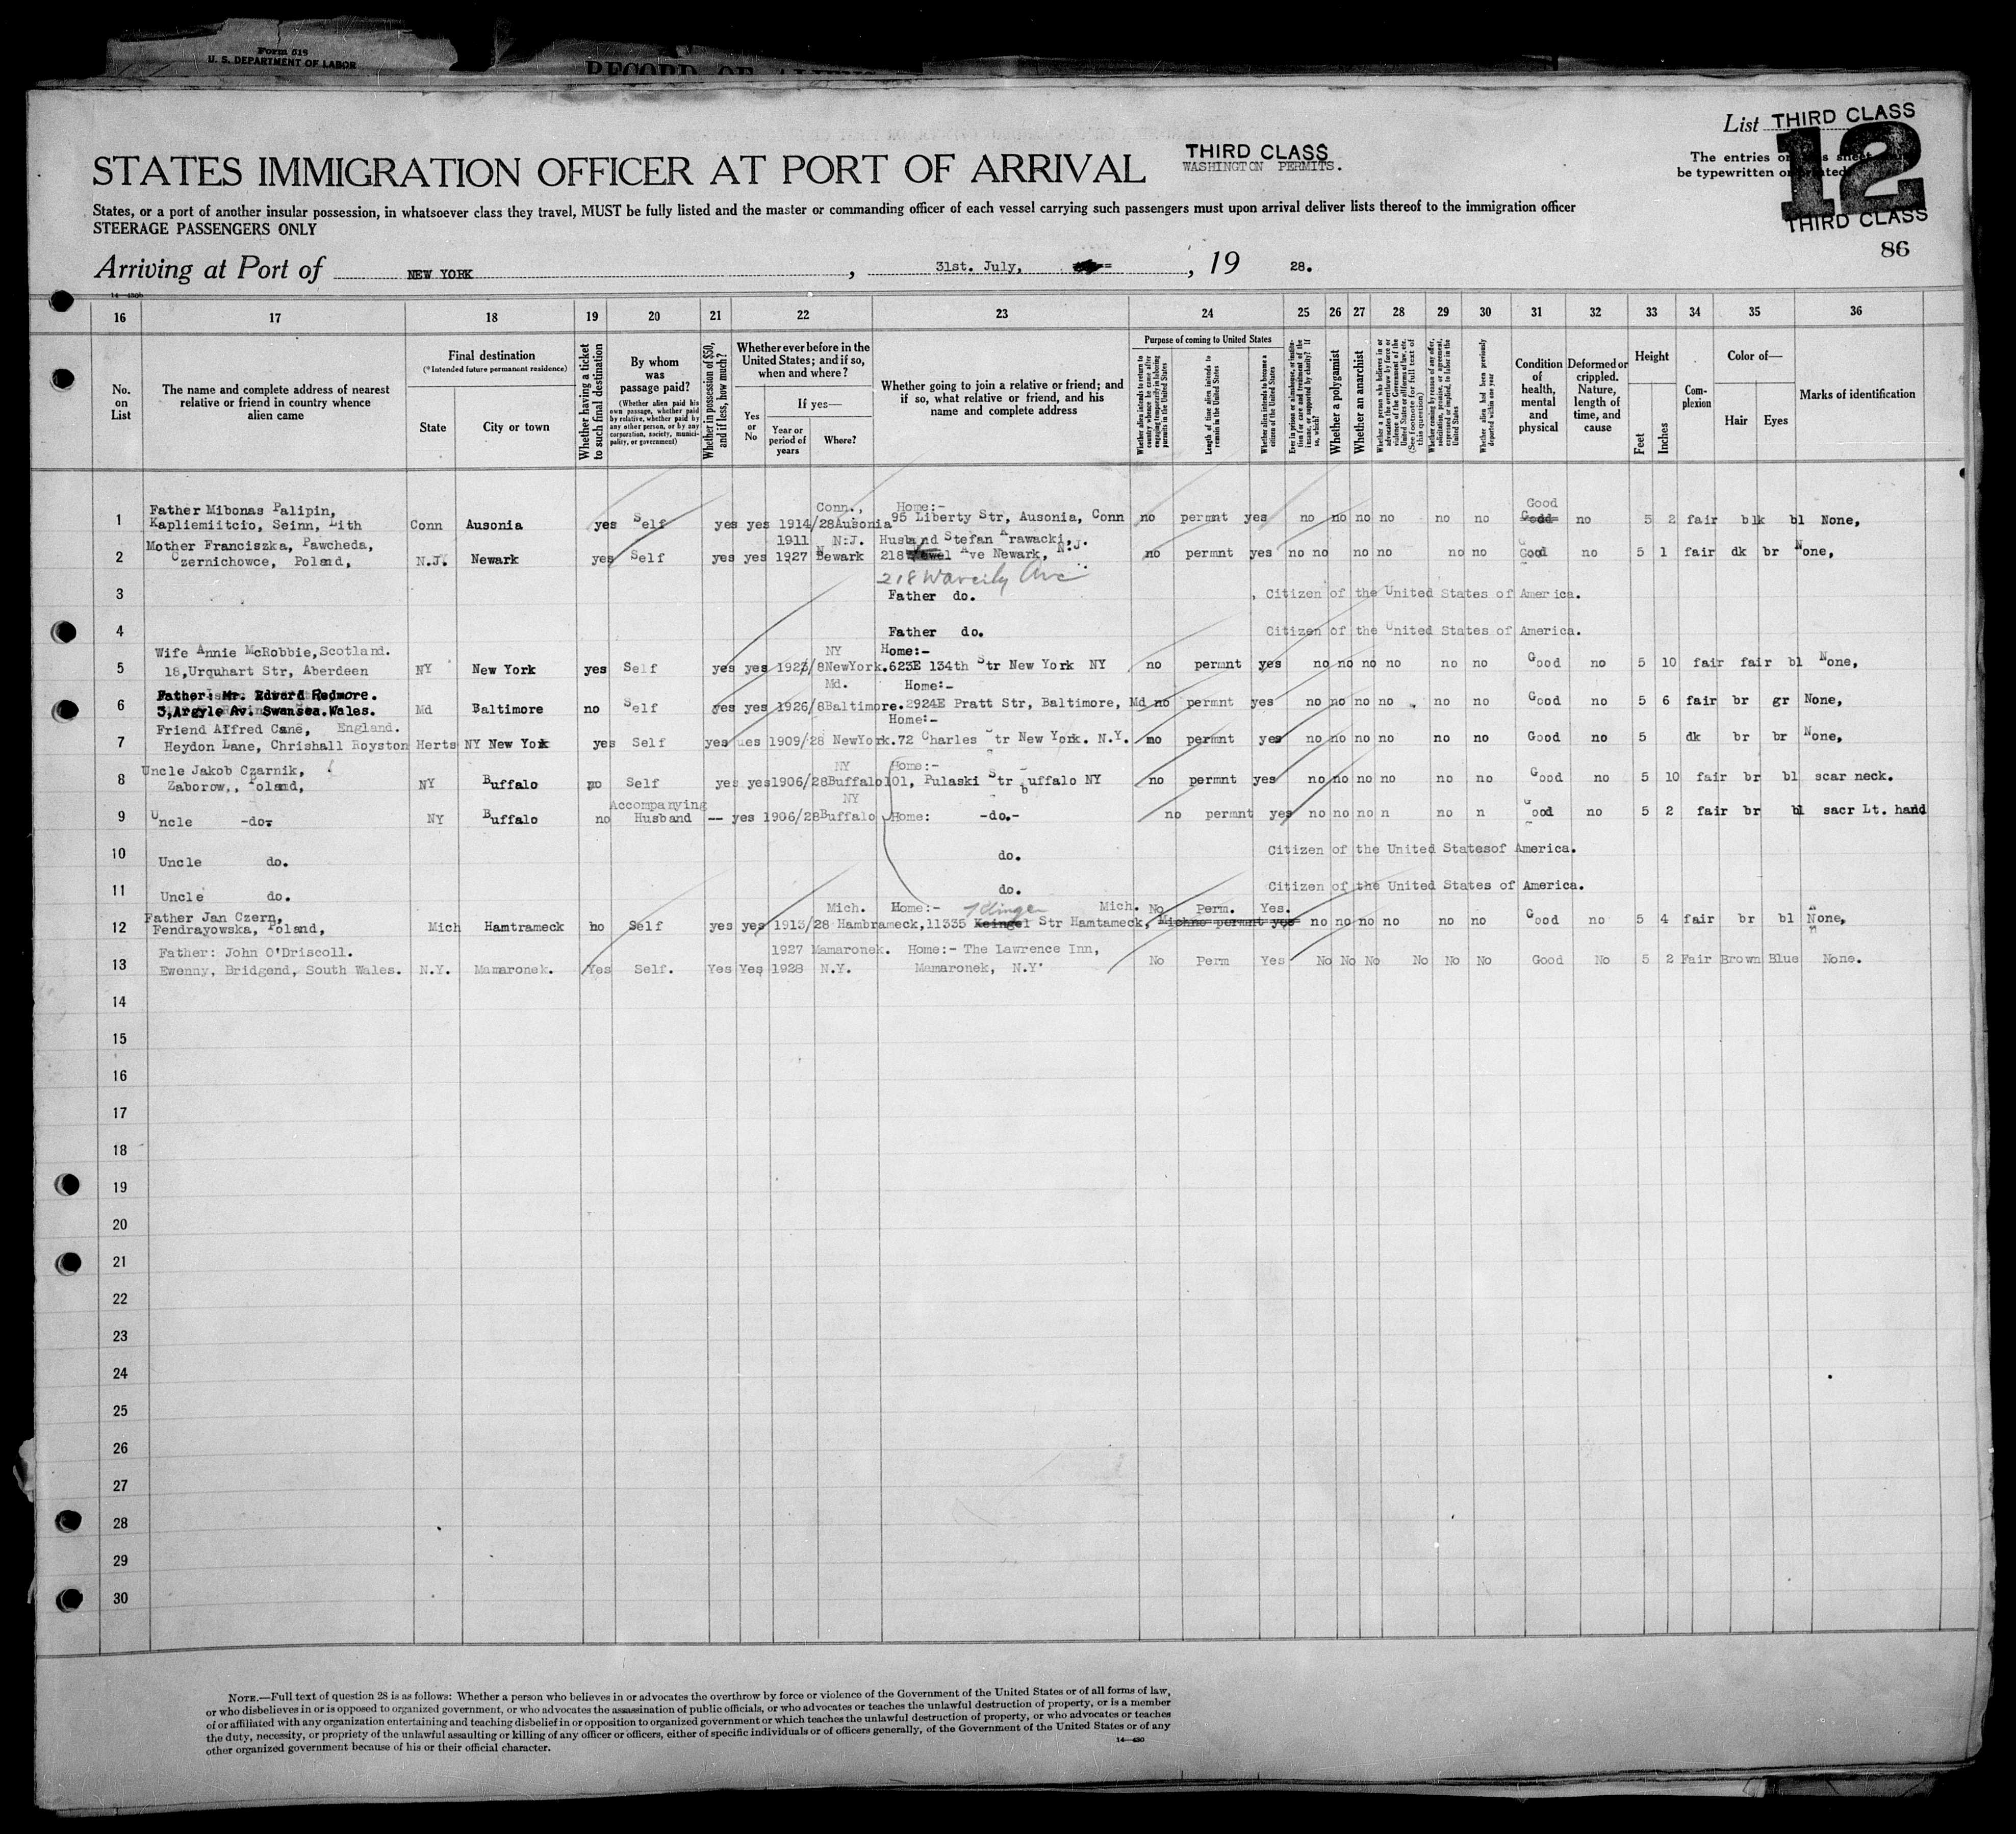 Form 519
U. S. DEPARTMENT OF LABOR
List THIRD CLASS
12
The entries on this sheet
be typewritten or printed
THIRD CLASS
86
STATES IMMIGRATION OFFICER AT PORT OF ARRIVAL
THIRD CLASS
WASHINGTON PERMITS.
States, or a port of another insular possession, in whatsoever class they travel, MUST be fully listed and the master or commanding officer of each vessel carrying such passengers must upon arrival deliver lists thereof to the immigration officer
STEERAGE PASSENGERS ONLY
Arriving at Port of NEW YORK, 31st. July, , 19 28.
16 17 18 19 20 21 22 23 24 25 26 27 28 29 30 31 32 33 34 35 36
No. on List
The name and complete address of nearest relative or friend in country whence alien came
Final destination
(*Intended future permanent residence)
State
City or town
Whether having a ticket to such final destination
By whom was passage paid?
(Whether alien paid his own passage, whether paid by relative, whether paid by any other person, or by any corporation, society, municipality, or government)
Whether in possession of $50, and if less, how much?
Whether ever before in the United States; and if so, when and where?
Yes or No
If yes—
Year or period of years
Where?
Whether going to join a relative or friend; and if so, what relative or friend, and his name and complete address
Purpose of coming to United States
Whether alien intends to return to country whence he came after engaging temporarily in laboring pursuits in the United States
Length of time alien intends to remain in the United States
Whether alien intends to become a citizen of the United States
Ever in prison or almshouse, or institution for care and treatment of the insane, or supported by charity? If so, which?
Whether a polygamist
Whether an anarchist
Whether coming by reason of any offer, solicitation, promise, or agreement, expressed or implied, to labor in the United States
Whether alien had been previously deported within one year
Condition of health, mental and physical
Deformed or crippled. Nature, length of time, and cause
Height
Feet
Inches
Complexion
Color of—
Hair Eyes
Marks of identification
1 Father Mibonas Palipin,
Kapliemiitcio, Seinn, Lith Conn Ausonia yes Self yes yes 1914/28 Conn., Ausonia Home:- 95 Liberty Str, Ausonia, Conn no permnt yes no no no no no no Good no 5 2 fair blk bl None,
2 Mother Franciszka, Pawcheda,
Czernichowce, Poland, N.J. Newark yes Self yes yes 1911 1927 N.J. Newark Husband Stefan Krawacki,
218 Ave Newark, N.J. no permnt yes no no no no no no Good no 5 1 fair dk br None,
218 Waverly Ave
3 Father do. , Citizen of the United States of America.
4 Father do. Citizen of the United States of America.
5 Wife Annie McRobbie, Scotland.
18, Urquhart Str, Aberdeen NY New York yes Self yes yes 1923/8 NY NewYork. Home:- 623E 134th Str New York NY no permnt yes no no no no no no Good no 5 10 fair fair bl None,
6 Father: Mr. Edward Redmore.
3, Argyle Av. Swansea. Wales. Md Baltimore no Self yes yes 1926/8 Md. Baltimore. Home:- 2924E Pratt Str, Baltimore, Md no permnt yes no no no no no no Good no 5 6 fair br gr None,
7 Friend Alfred Cane, England.
Heydon Lane, Chrishall Royston Herts NY New York yes Self yes ues 1909/28 NewYork. Home:- 72 Charles Str New York. N.Y. no permnt yes no no no no no no Good no 5 dk br br None,
8 Uncle Jakob Czarnik,
Zaborow,, Poland, NY Buffalo no Self yes yes 1906/28 NY Buffalo Home:- 101, Pulaski Str Buffalo NY no permnt yes no no no no no no Good no 5 10 fair br bl scar neck.
9 Uncle -do- NY Buffalo no Accompanying Husband -- yes 1906/28 NY Buffalo Home: -do.- no permnt yes no no no n no n Good no 5 2 fair br bl sacr Lt. hand
10 Uncle do. do. Citizen of the United Statesof America.
11 Uncle do. do. Citizen of the United States of America.
12 Father Jan Czern,
Fendrayowska, Poland, Mich Hamtrameck no Self yes yes 1913/28 Mich. Hambrameck, Home:- 11335 Keingel Str Hamtameck, Mich. No Perm. Yes. Michno permnt yes no no no no no no Good no 5 4 fair br bl None,
13 Father: John O'Driscoll.
Ewenny, Bridgend, South Wales. N.Y. Mamaronek. Yes Self. Yes Yes 1927 1928 Mamaronek. N.Y. Home:- The Lawrence Inn,
Mamaronek, N.Y. No Perm Yes No No No No No No Good No 5 2 Fair Brown Blue None.
14
15
16
17
18
19
20
21
22
23
24
25
26
27
28
29
30
NOTE.—Full text of question 28 is as follows: Whether a person who believes in or advocates the overthrow by force or violence of the Government of the United States or of all forms of law,
or who disbelieves in or is opposed to organized government, or who advocates the assassination of public officials, or who advocates or teaches the unlawful destruction of property, or is a member
of or affiliated with any organization entertaining and teaching disbelief in or opposition to organized government or which teaches the unlawful destruction of property, or who advocates or teaches
the duty, necessity, or propriety of the unlawful assaulting or killing of any officer or officers, either of specific individuals or of officers generally, of the Government of the United States or of any
other organized government because of his or their official character.
14—430